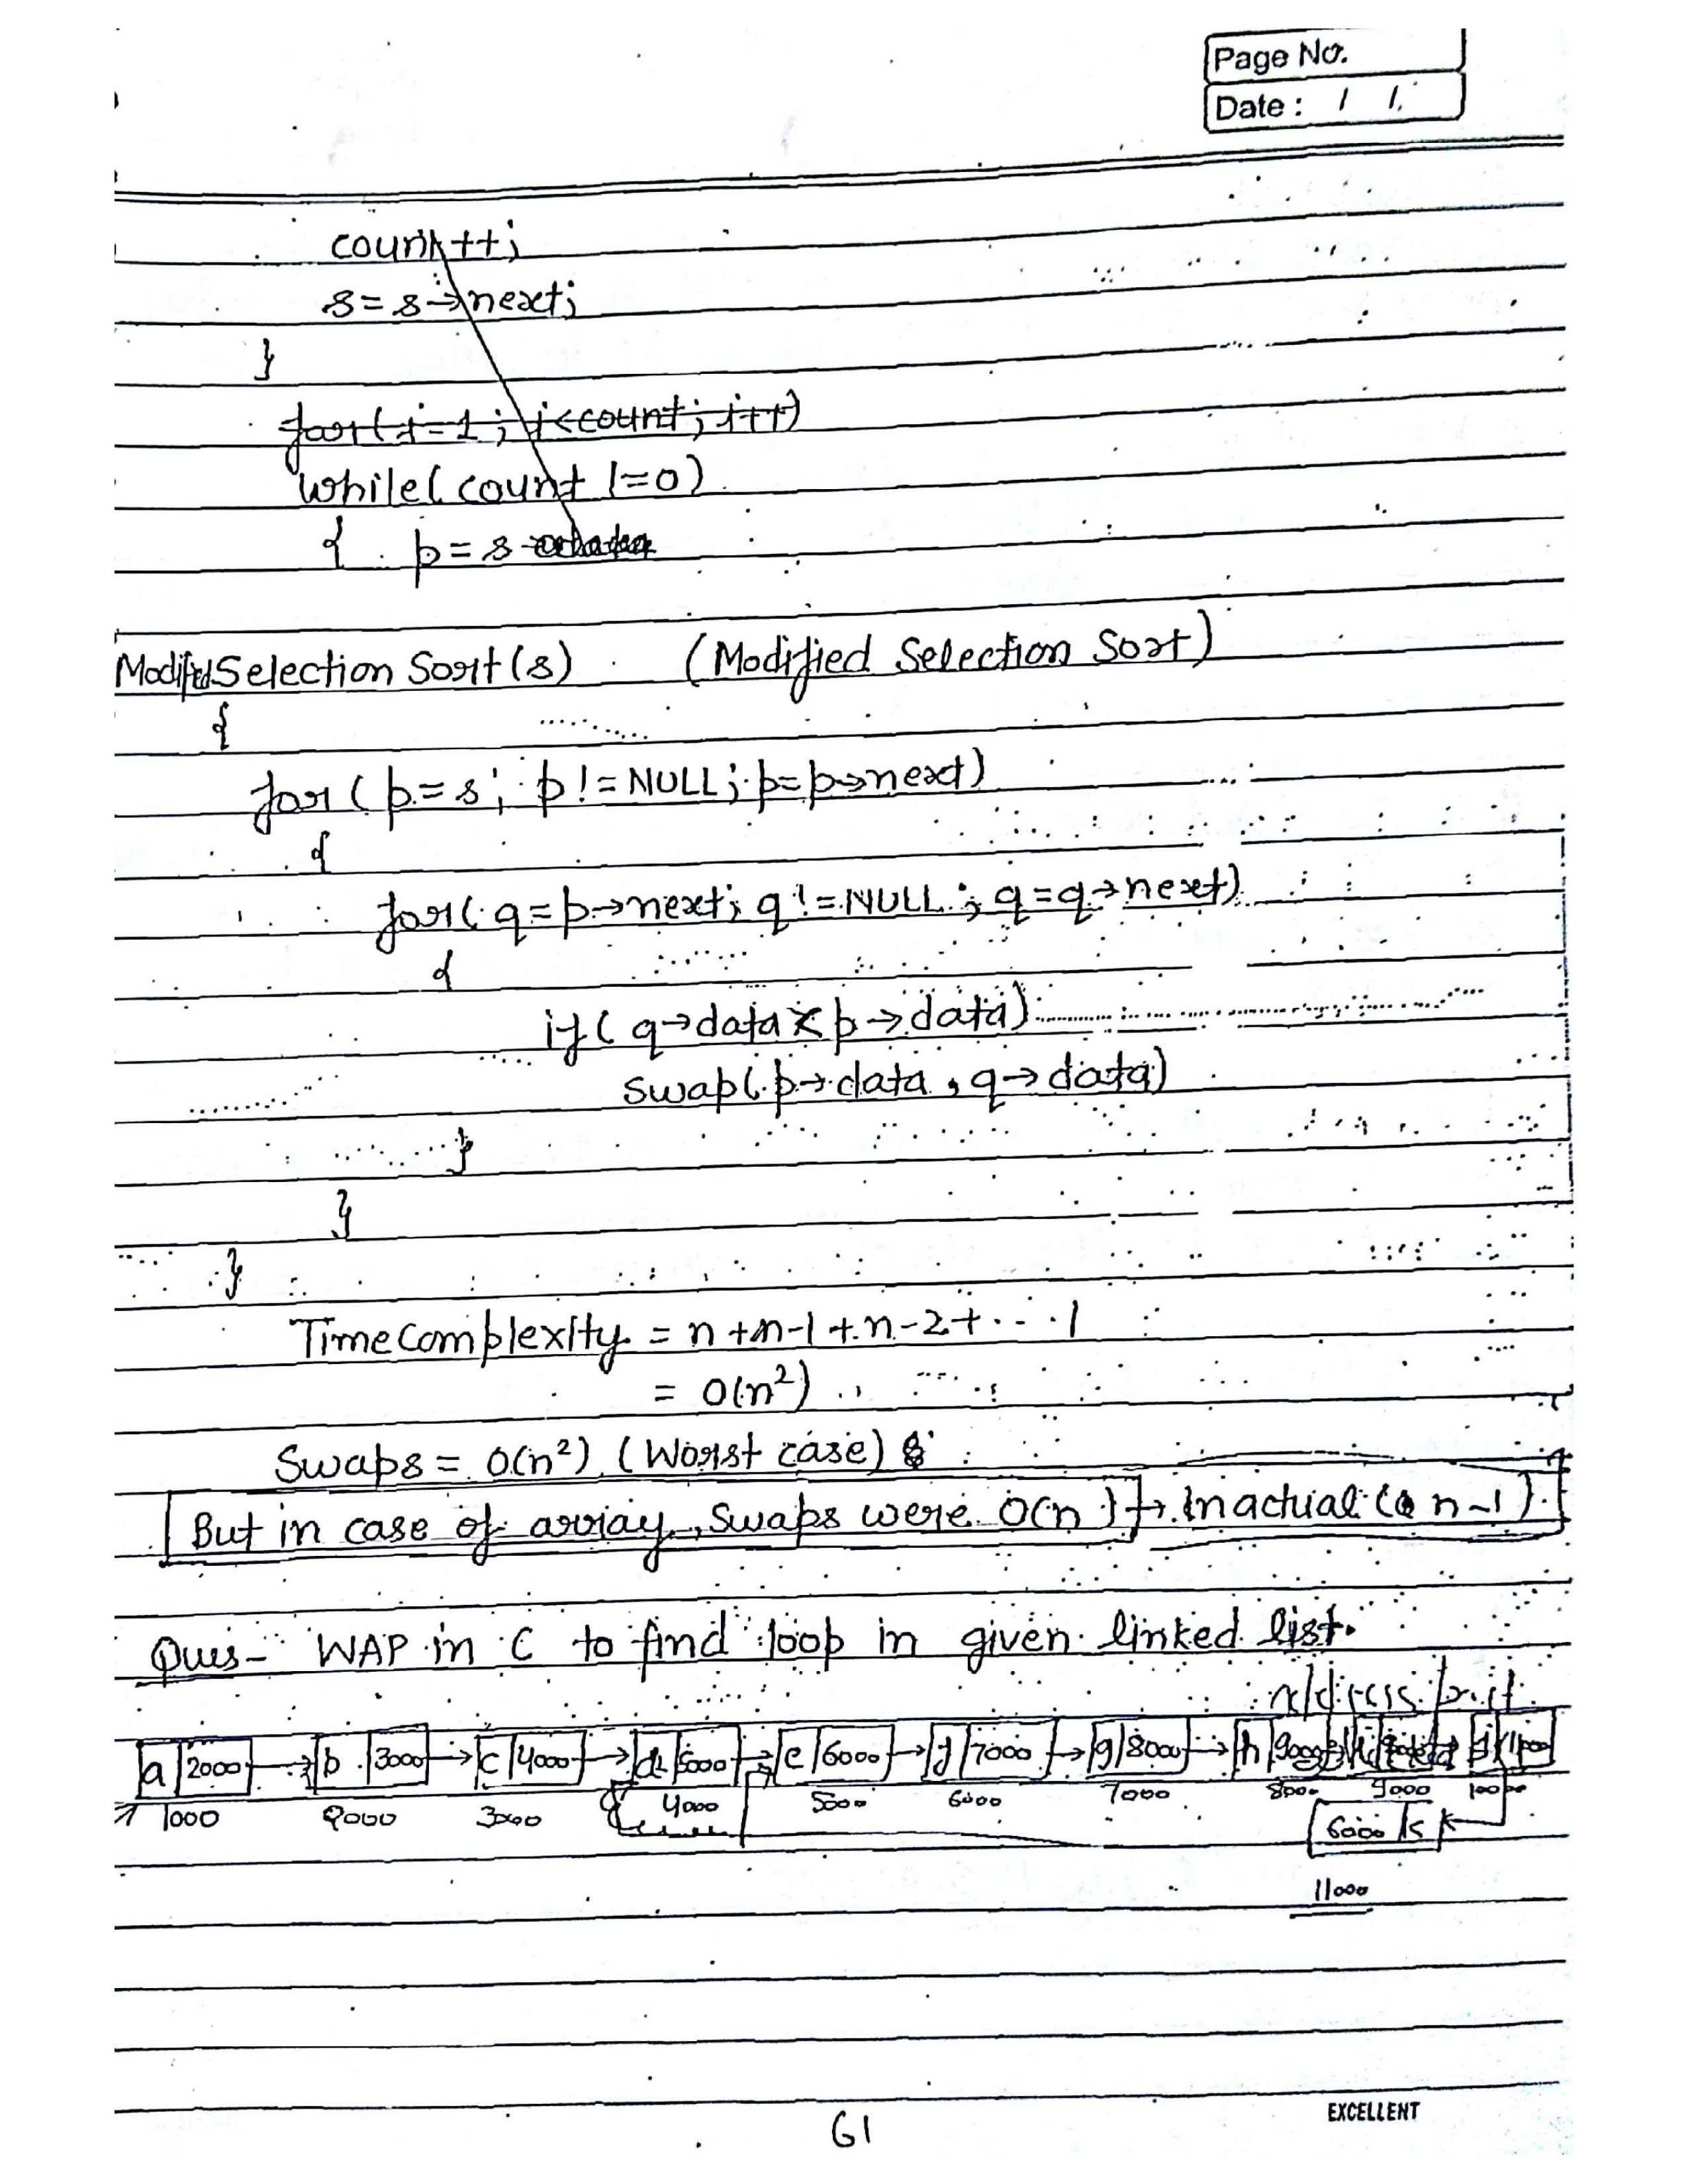 Page No.
Date : / /
count++;
s = s→next;
}
for(i=1; i<count; i++)
while( count !=0)
{ p = s
Modified Selection Sort(s) (Modified Selection Sort)
{
for( p=s; p!=NULL; p=p→next)
{
for( q=p→next; q!=NULL; q=q→next)
{
if( q→data < p→data)
swap( p→data , q→data)
}
}
}
Time Complexity = n+n-1+n-2+...1
= O(n²)
Swaps = O(n²) (Worst case)
But in case of array, Swaps were O(n) → In actual ( n-1)
Ques- WAP in C to find loop in given linked list.
a 2000 → b 3000 → c 4000 → d 5000 → e 6000 → f 7000 → g 8000 → h 9000
1000 2000 3000 4000 5000 6000 7000 8000 9000 10000
6000 k
11000
61
EXCELLENT